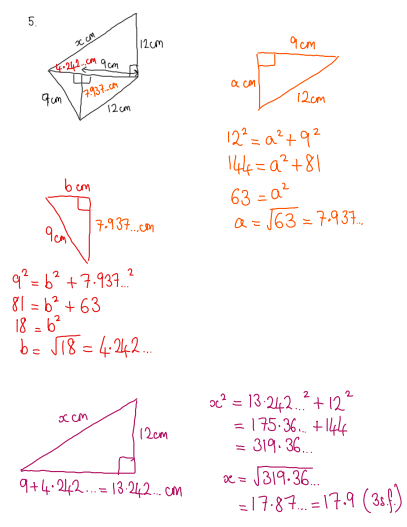 5.
x cm
12cm
4.242...cm
9cm
9cm
7.937...cm
12cm
9cm
a cm
12cm
12² = a² + 9²
144 = a² + 81
63 = a²
a = √63 = 7.937...
b cm
9cm
7.937...cm
9² = b² + 7.937...²
81 = b² + 63
18 = b²
b = √18 = 4.242...
x cm
12cm
9+4.242... = 13.242... cm
x² = 13.242...² + 12²
= 175.36... + 144
= 319.36...
x = √319.36...
= 17.87... = 17.9 (3s.f.)